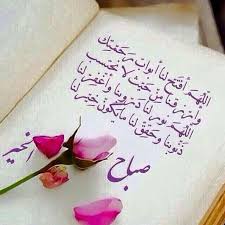 اللهم افتح لنا أبواب رحمتك
وارزقنا من حيث لا نحتسب
اللهم نور لنا دروبنا واغفر لنا
ذنوبنا وحقق لنا ما يكون خير لنا
صباح الخير